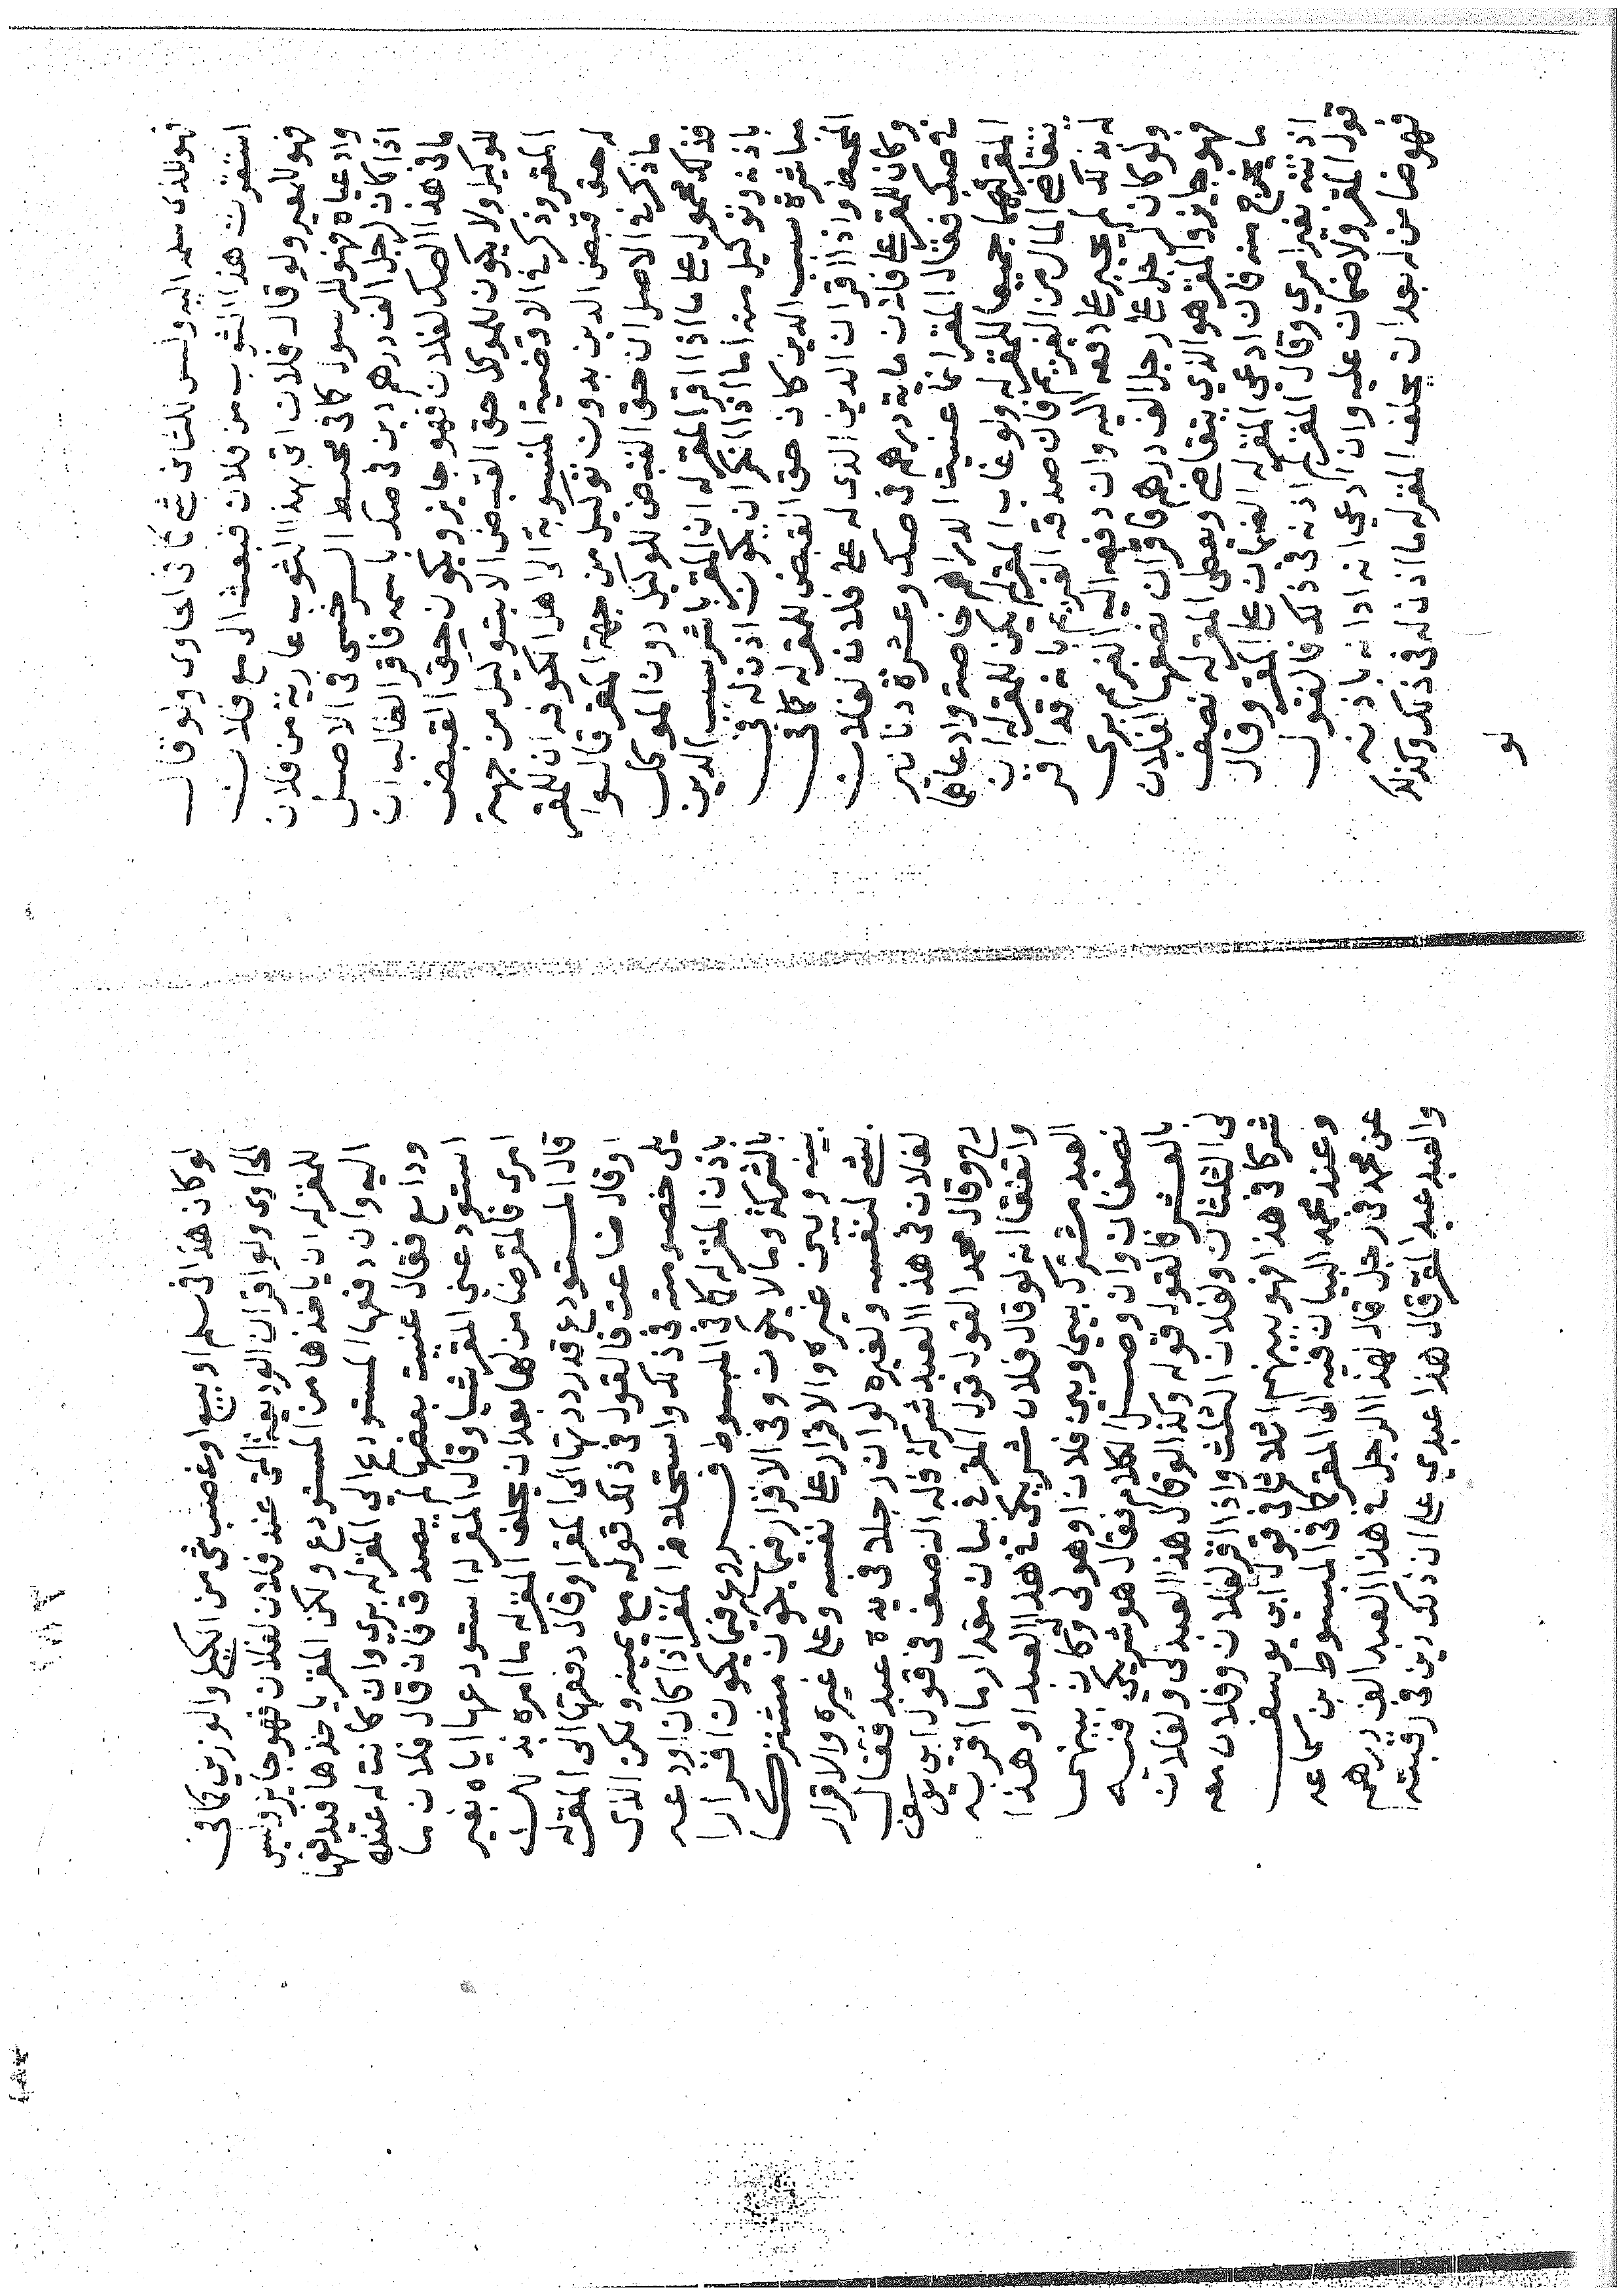 فهو للذى سلمه اليه وليس للثانى شئ كذا فى الحاوى ولو قال
استقرت هذا الثوب من فلان فبعث الى مع فلان
فهو للمعير ولو قال فلان اتى بهذا الثوب عارية من فلان
وادعياه فهو للرسول كذا فى محيط السرخسى فى الاصل
اذا كان لرجل الف درهم دين فى صك باسمه فاقر الطالب ان
ما فى هذا الصك لفلان فهو جايز ويكون حق القبض
للوكيل ولا يكون للموكل حق القبض الا بتوكيل من جهة
المقر وذكر فى الاقضية المنسوبة الى اهل الكوفه ان للمقر
له حق قبض الدين بدون توكيل من جهة المقر قالوا
ما ذكر فى الاصل ان حق القبض للوكيل دون الموكل
فذلك محمول على ما اذا اقر المقر له ان المقر باشر سبب الدين
باذنه وتوكيل منه اما اذا انكر ان يكون اذن له فى
مباشرة سبب الدين كان حق القبض للمقر له كذا فى
المحيط واذا اقر ان الدين الذى له على فلان لفلان
وكان للمقر على فلان ماية درهم فى صك وعشرة دنانير
فى صك فقال المقر انما عنيت الدراهم خاصة وادعاها
المقر لهما جميعا للمقر له ولو غاب المقر لم يكن للمقر له ان
يتقاضى المال من الغريم فان صدقه الغريم بانه قد اقر
له بذلك لم يجبر على دفعه اليه وان دفعه اليه الغريم برى
ولو كان لرجل على رجل الف درهم فاقر ان نصفها لفلان
فهو جايز والمقر هو الذي يتقاضى ويعطى المقر له نصف
ما يخرج منه فان ادعى المقر له الضمان على المقر وقال
اذنته بغير امري وقال المقر لم اذنه فى ذلك فالقول
قول المقر ولا ضمان عليه وان ادعى انه ادانه باذنه
فهو ضامن له بعد ان يحلف المقر له ما اذن له فى ذلك وكذلك
لو
لو كان هذا فى سلم او بيع او غصب شئ من الكيلى والوزنى كذا فى
الحاوى ولو اقر ان الوديعة التى عند فلان لفلان فهو جايز وليس
للمقر له ان ياخذها من المستودع ولكن المقر ياخذها فيدفعها
اليه وان دفعها المستودع الى المقر له بري وان كانت له عنده
ودايع فقال عنيت بعضها لم يصدق فان قال فلان ما
استودعنى المقر شيا وقال المقر له استودعها اياه بغير
امرى فالمقر ضامن لها بعد ان يحلف المقر له ما امره بذلك
قال المستودع قد رددتها الى المقر او قال دفعتها الى المقر له
او قال ضاعت فالقول فى ذلك قوله مع يمينه ولكن الذى
يلى خصومته فى ذلك واستحلافه المقر اذا كان اودعه
باذن المقر له كذا فى المبسوط فروع فيما يكون اقرارا
بالشركة وما لا يكون وفى الاقرار فيما يكون مشتركا
بينه وبين غيره والاقرار على نفسه وعلى غيره والاقرار
بشئ لنفسه ولغيره لو ان رجلا فى يده عبد فقال
لفلان فى هذا العبد شركة فله النصف فى قول ابى يوسف
رح وقال محمد القول قول المقر فى بيان مقدار ما اقر به
واتفقا انه لو قال فلان شريكى فى هذا العبد او هذا
العبد مشترك بينى وبين فلان او هو لى وله كان بينهما
نصفان وان وصل الكلام فقال هو شريكي فيه
بالعشر فالقول قوله وكذا لو قال هذا العبد لى ولفلان
لى الثلثان ولفلان الثلث واذا اقر لفلان وفلان معه
شركا فى هذا فهو بينهم اثلاثا فى قول ابى يوسف
وعند محمد البيان فيه الى المقر كذا فى المبسوط بن سماعه
عن محمد فى رجل قال لهذا الرجل فى هذا العبد الف درهم
والعبد عبد المقر قال هذا عبدي على ان ذلك دين فى رقبته